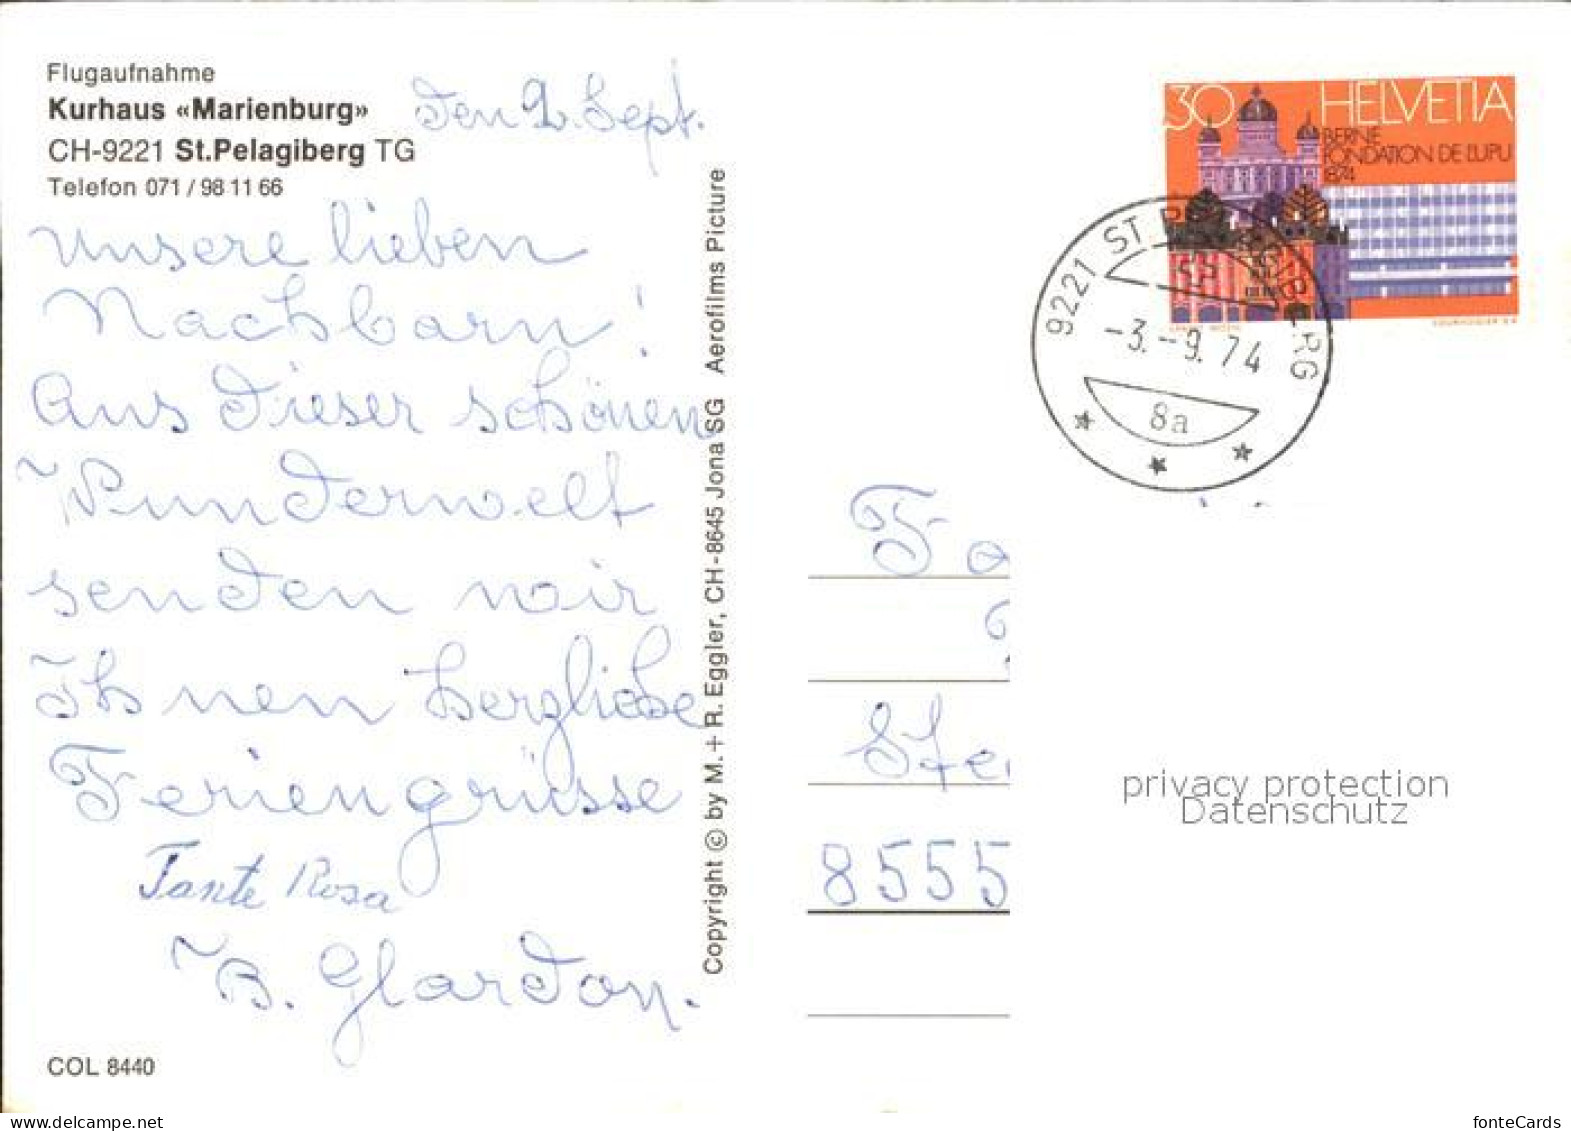 Flugaufnahme
Kurhaus «Marienburg»
CH-9221 St.Pelagiberg TG
Telefon 071 / 98 11 66
den 2. Sept.
Unsere lieben
Nachbarn!
Aus dieser schönen
Wunderwelt
senden wir
Ihnen herzliche
Feriengrüsse
Tante Rosa
B. Glardon.
COL 8440
Copyright © by M. + R. Eggler, CH-8645 Jona SG Aerofilms Picture
30 HELVETIA
BERNE
FONDATION DE L'UPU
1874
9221 ST. PELAGIBERG
-3.-9.74
8a
Fa
Ste
8555
privacy protection
Datenschutz
www.delcampe.net
fonteCards